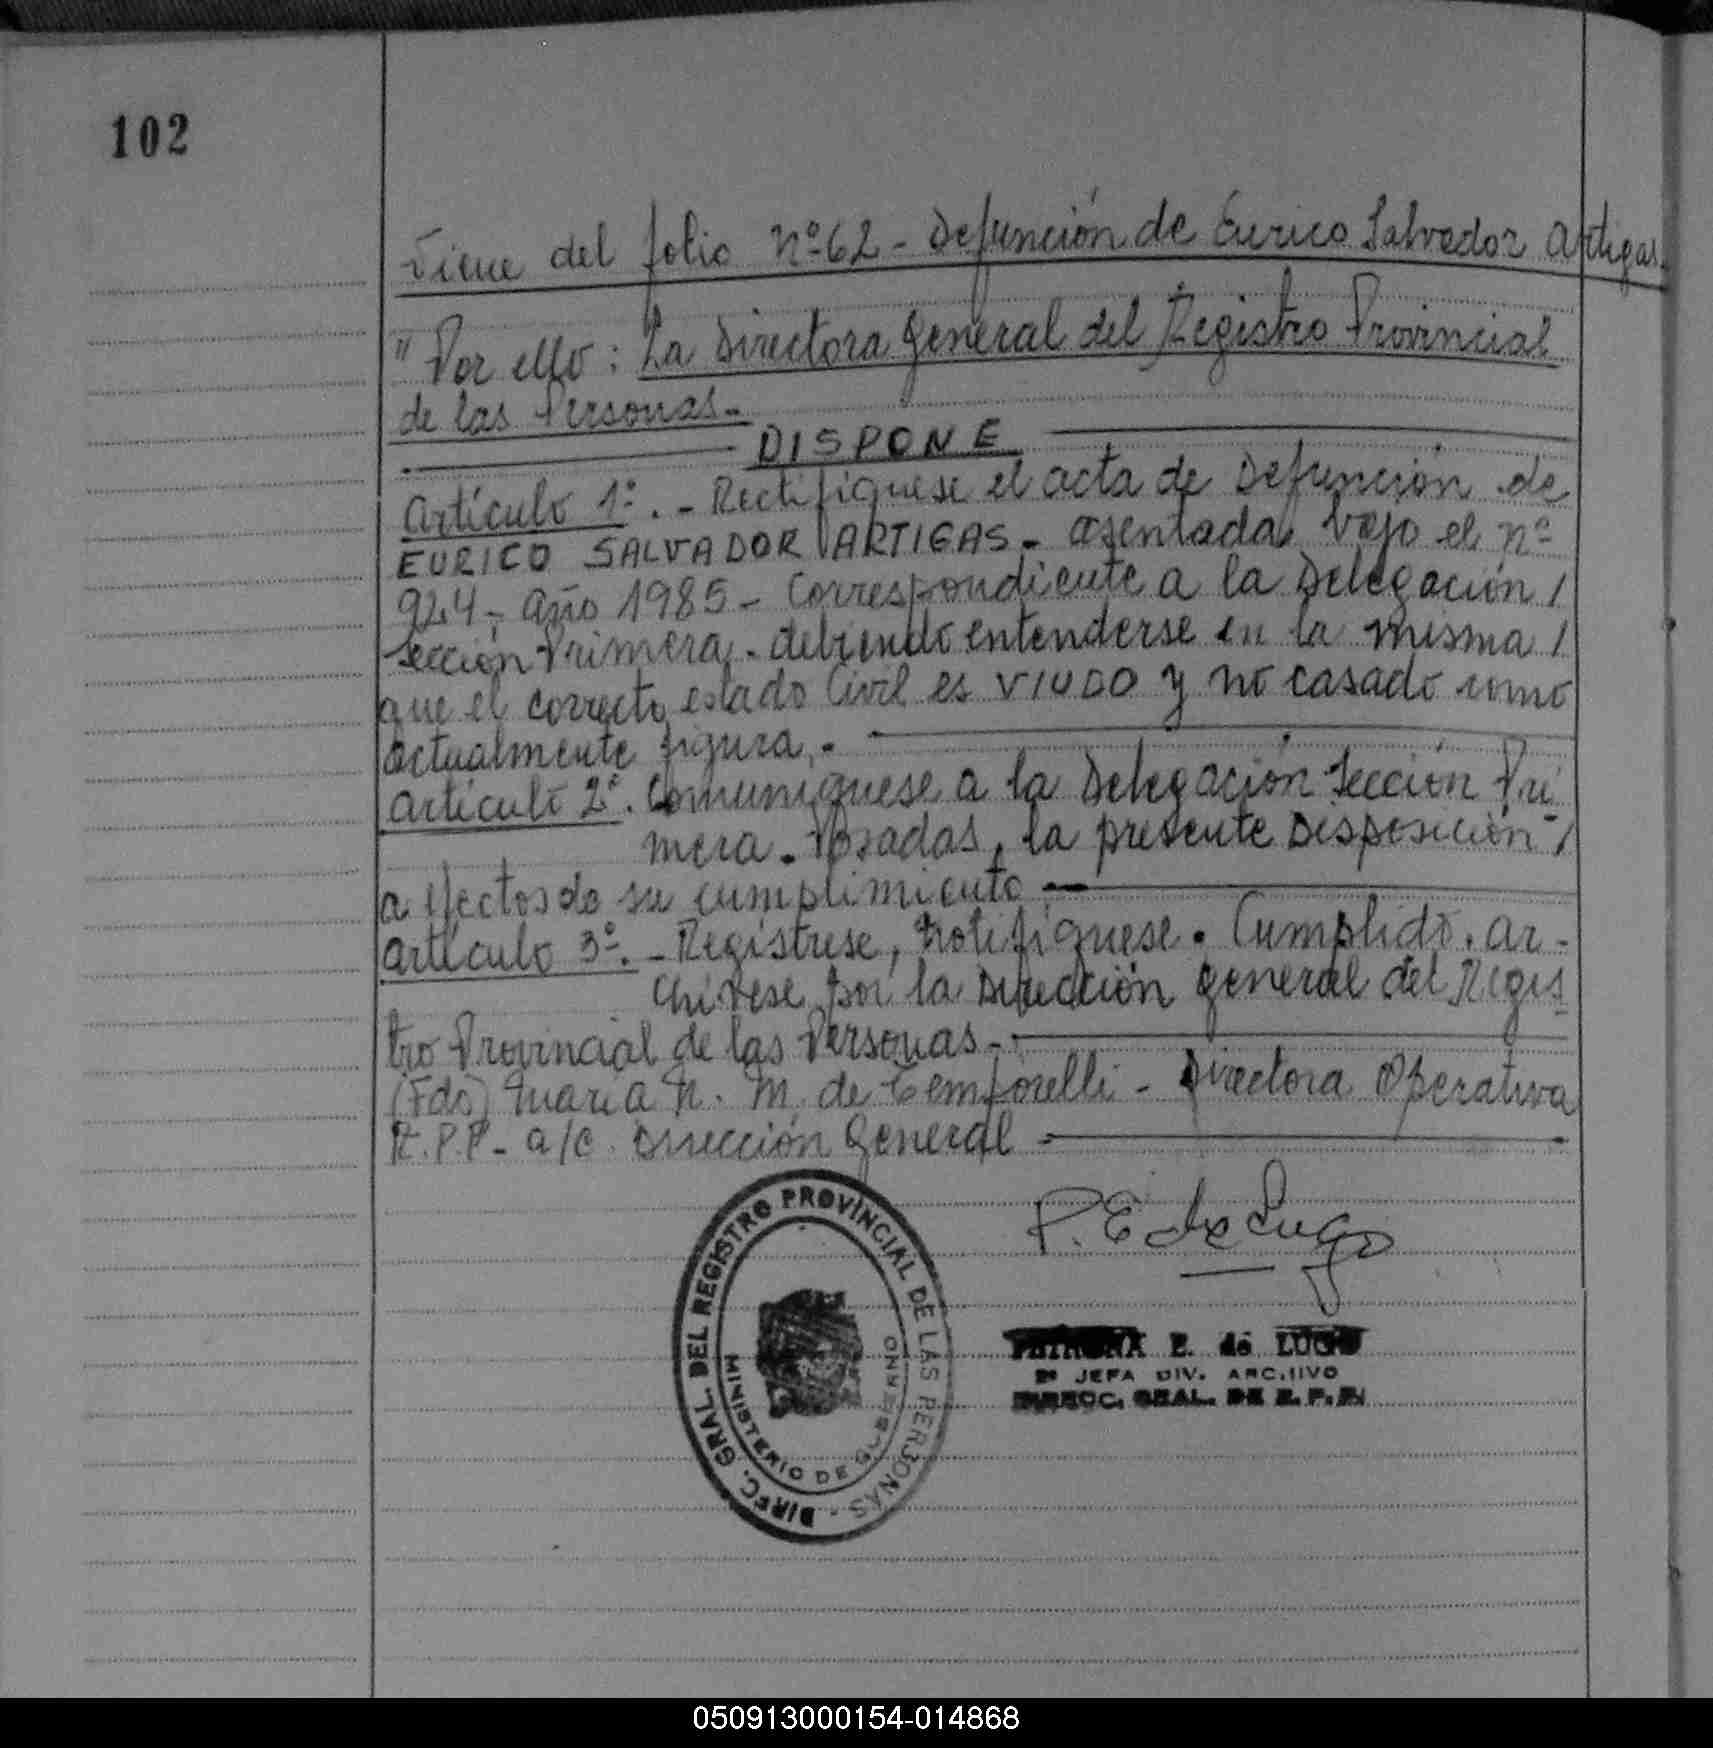 102
Viene del folio nº 62 - Defunción de Eurico Salvador Artigas.
" Por ello: La Directora General del Registro Provincial
de las Personas.-
DISPONE
Artículo 1º.- Rectifíquese el acta de Defunción de
EURICO SALVADOR ARTIGAS - asentada bajo el nº
924 - año 1985 - Correspondiente a la Delegación /
Sección Primera - debiendo entenderse en la misma /
que el correcto estado Civil es VIUDO y no casado como
actualmente figura.-
Artículo 2º. Comuníquese a la Delegación Sección Pri
mera. Posadas, la presente Disposición /
a efectos de su cumplimiento.-
Artículo 3º.- Regístrese, Notifíquese. Cumplido. Ar-
chívese por la Dirección General del Regis
tro Provincial de las Personas.-
(Fdo) Maria N. M. de Temporelli - Directora Operativa
R.P.P - a/c. Dirección General
P. E de Lugo
E. de LUGO
2º JEFA DIV. ARCHIVO
DIRECC. GRAL. DE R. P. P.
DIREC. GRAL. DEL REGISTRO PROVINCIAL DE LAS PERSONAS -
MINISTERIO DE GOBIERNO
050913000154-014868